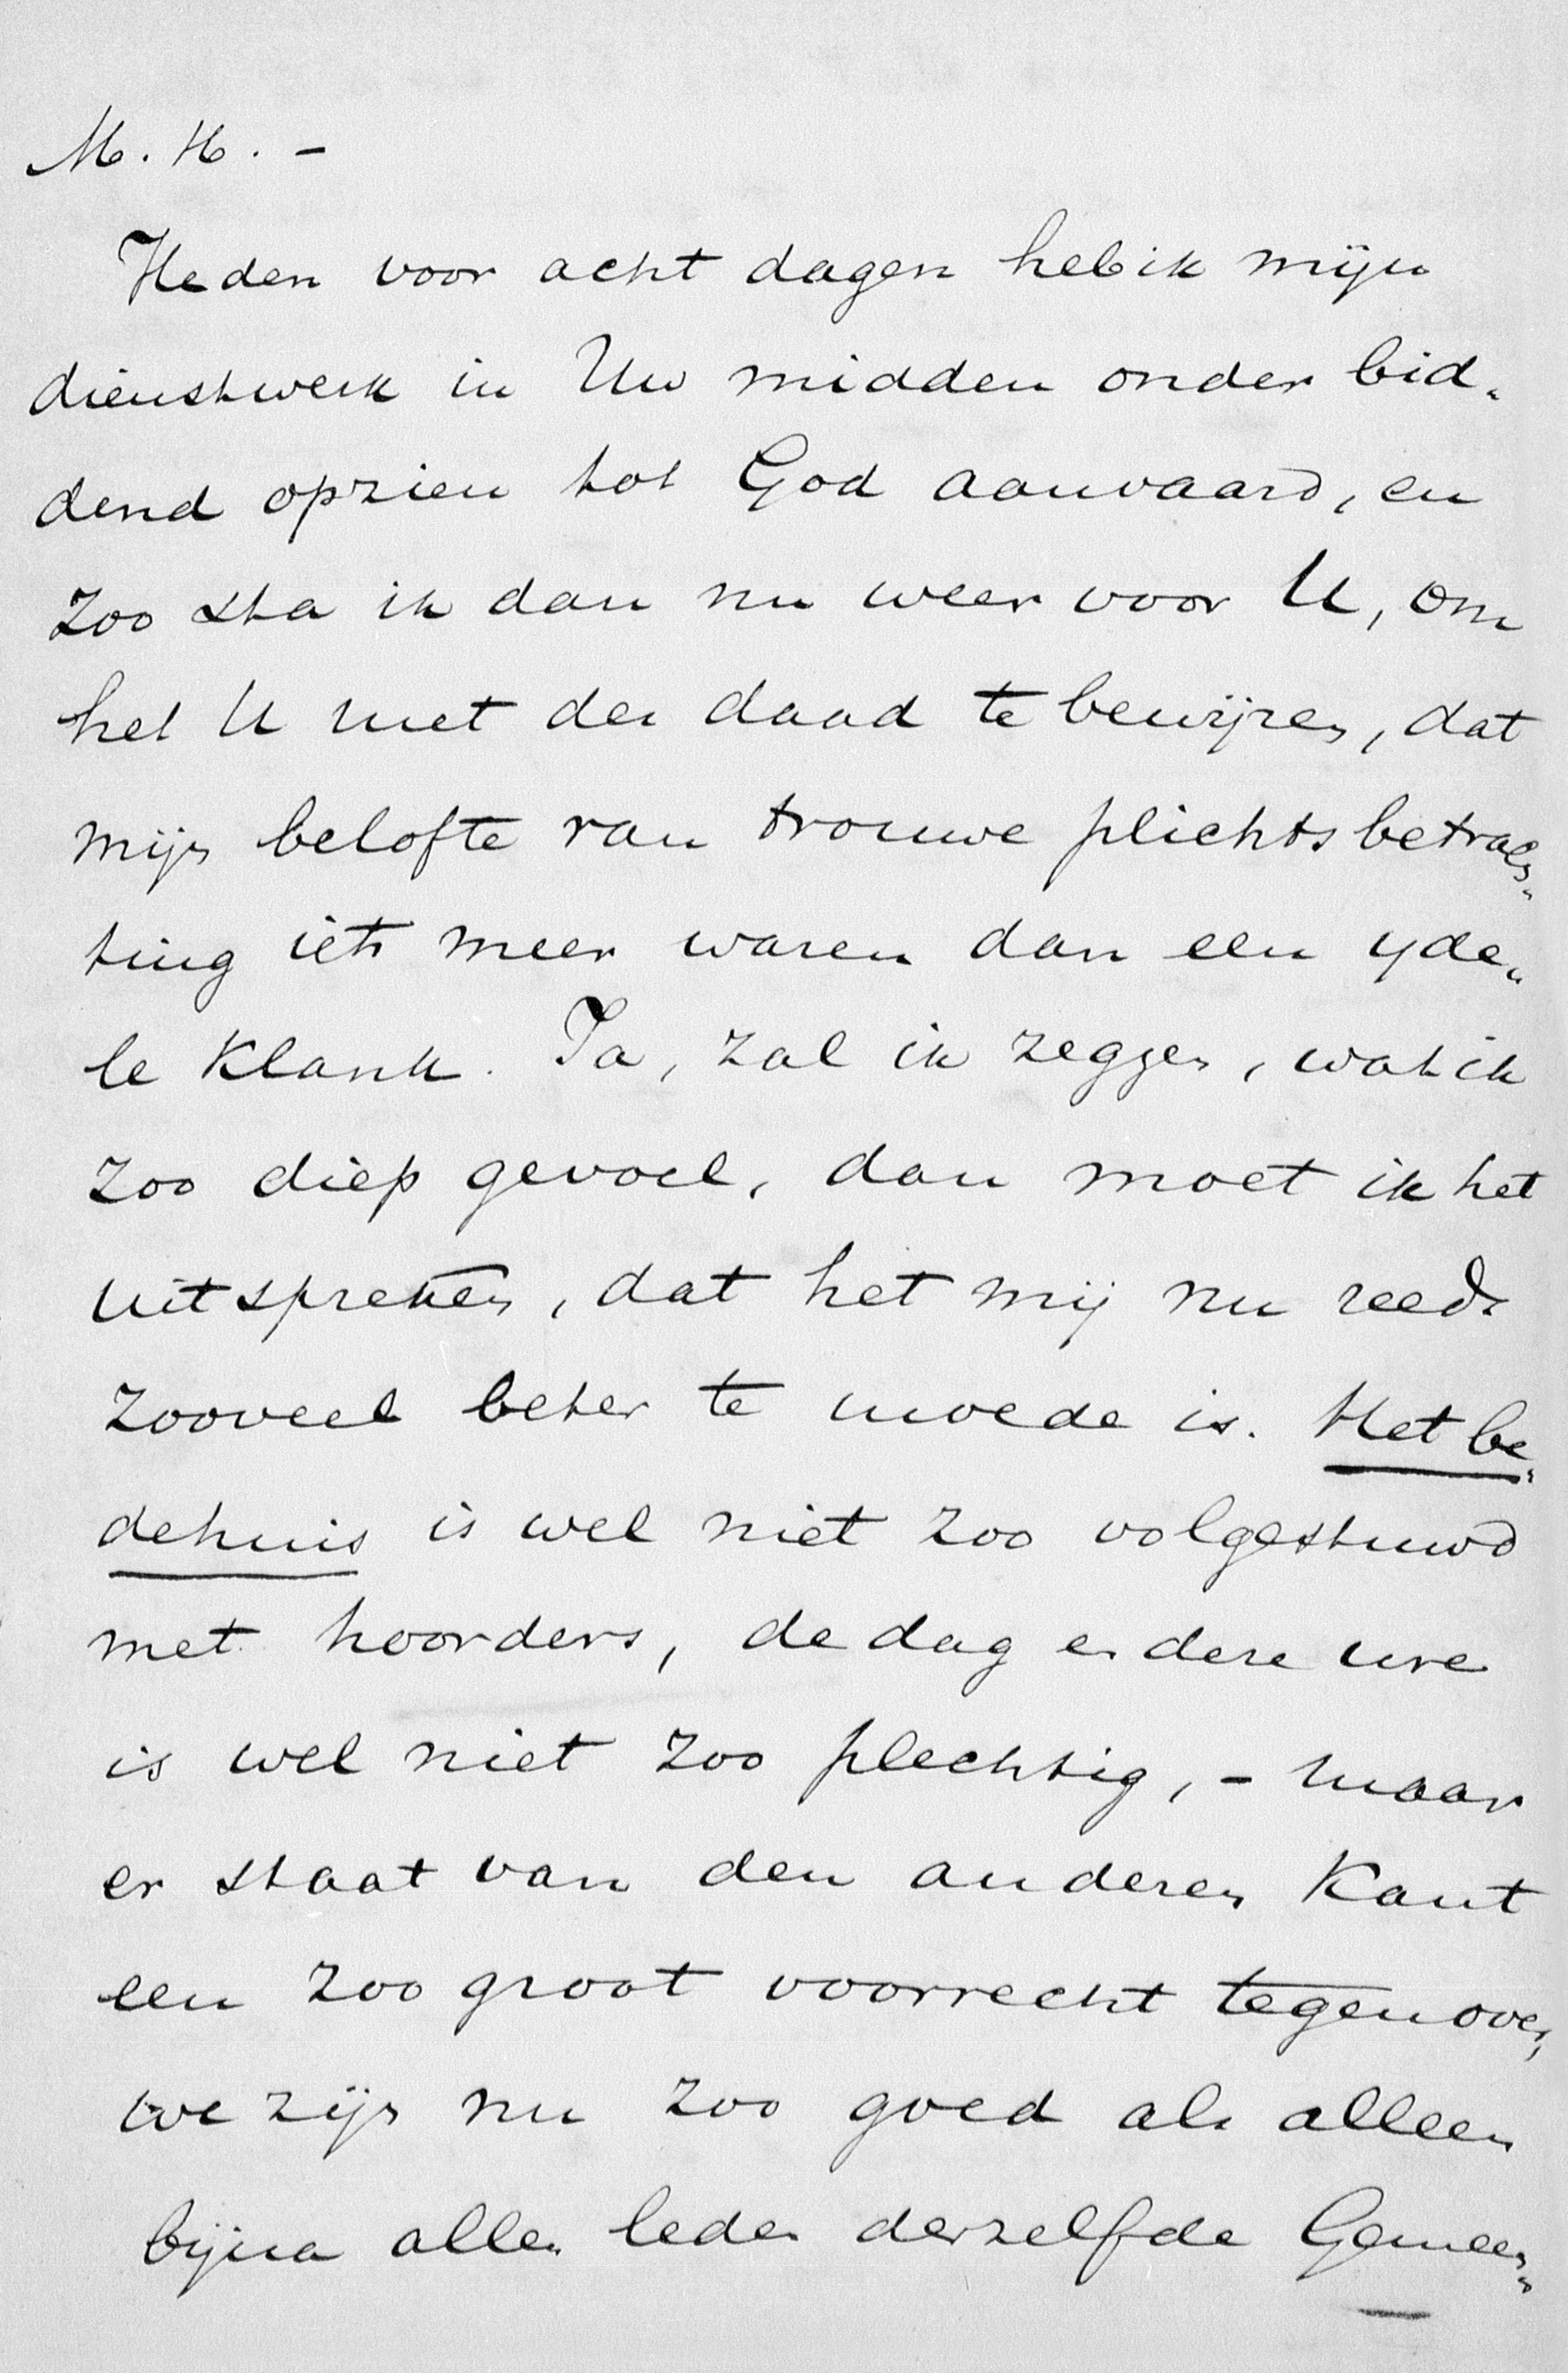 M. H. -
Heden voor acht dagen heb ik mijn
dienstwerk in Uw midden onder bid-
dend opzien tot God aanvaard, en
zoo sta ik dan nu weer voor U, om
het U met der daad te bewijzen, dat
mijn belofte van trouwe plichtsbetrach-
ting iets meer waren dan een yde-
le klank. Ja, zal ik zeggen, wat ik
zoo diep gevoel, dan moet ik het
uitspreken, dat het mij nu reeds
zooveel beter te moede is. Het be-
dehuis is wel niet zoo volgestuwd
met hoorders, de dag en deze ure
is wel niet zoo plechtig, - maar
er staat van den anderen kant
een zoo groot voorrecht tegenover,
we zijn nu zoo goed als alleen
bijna allen leden derzelfde Gemeen-